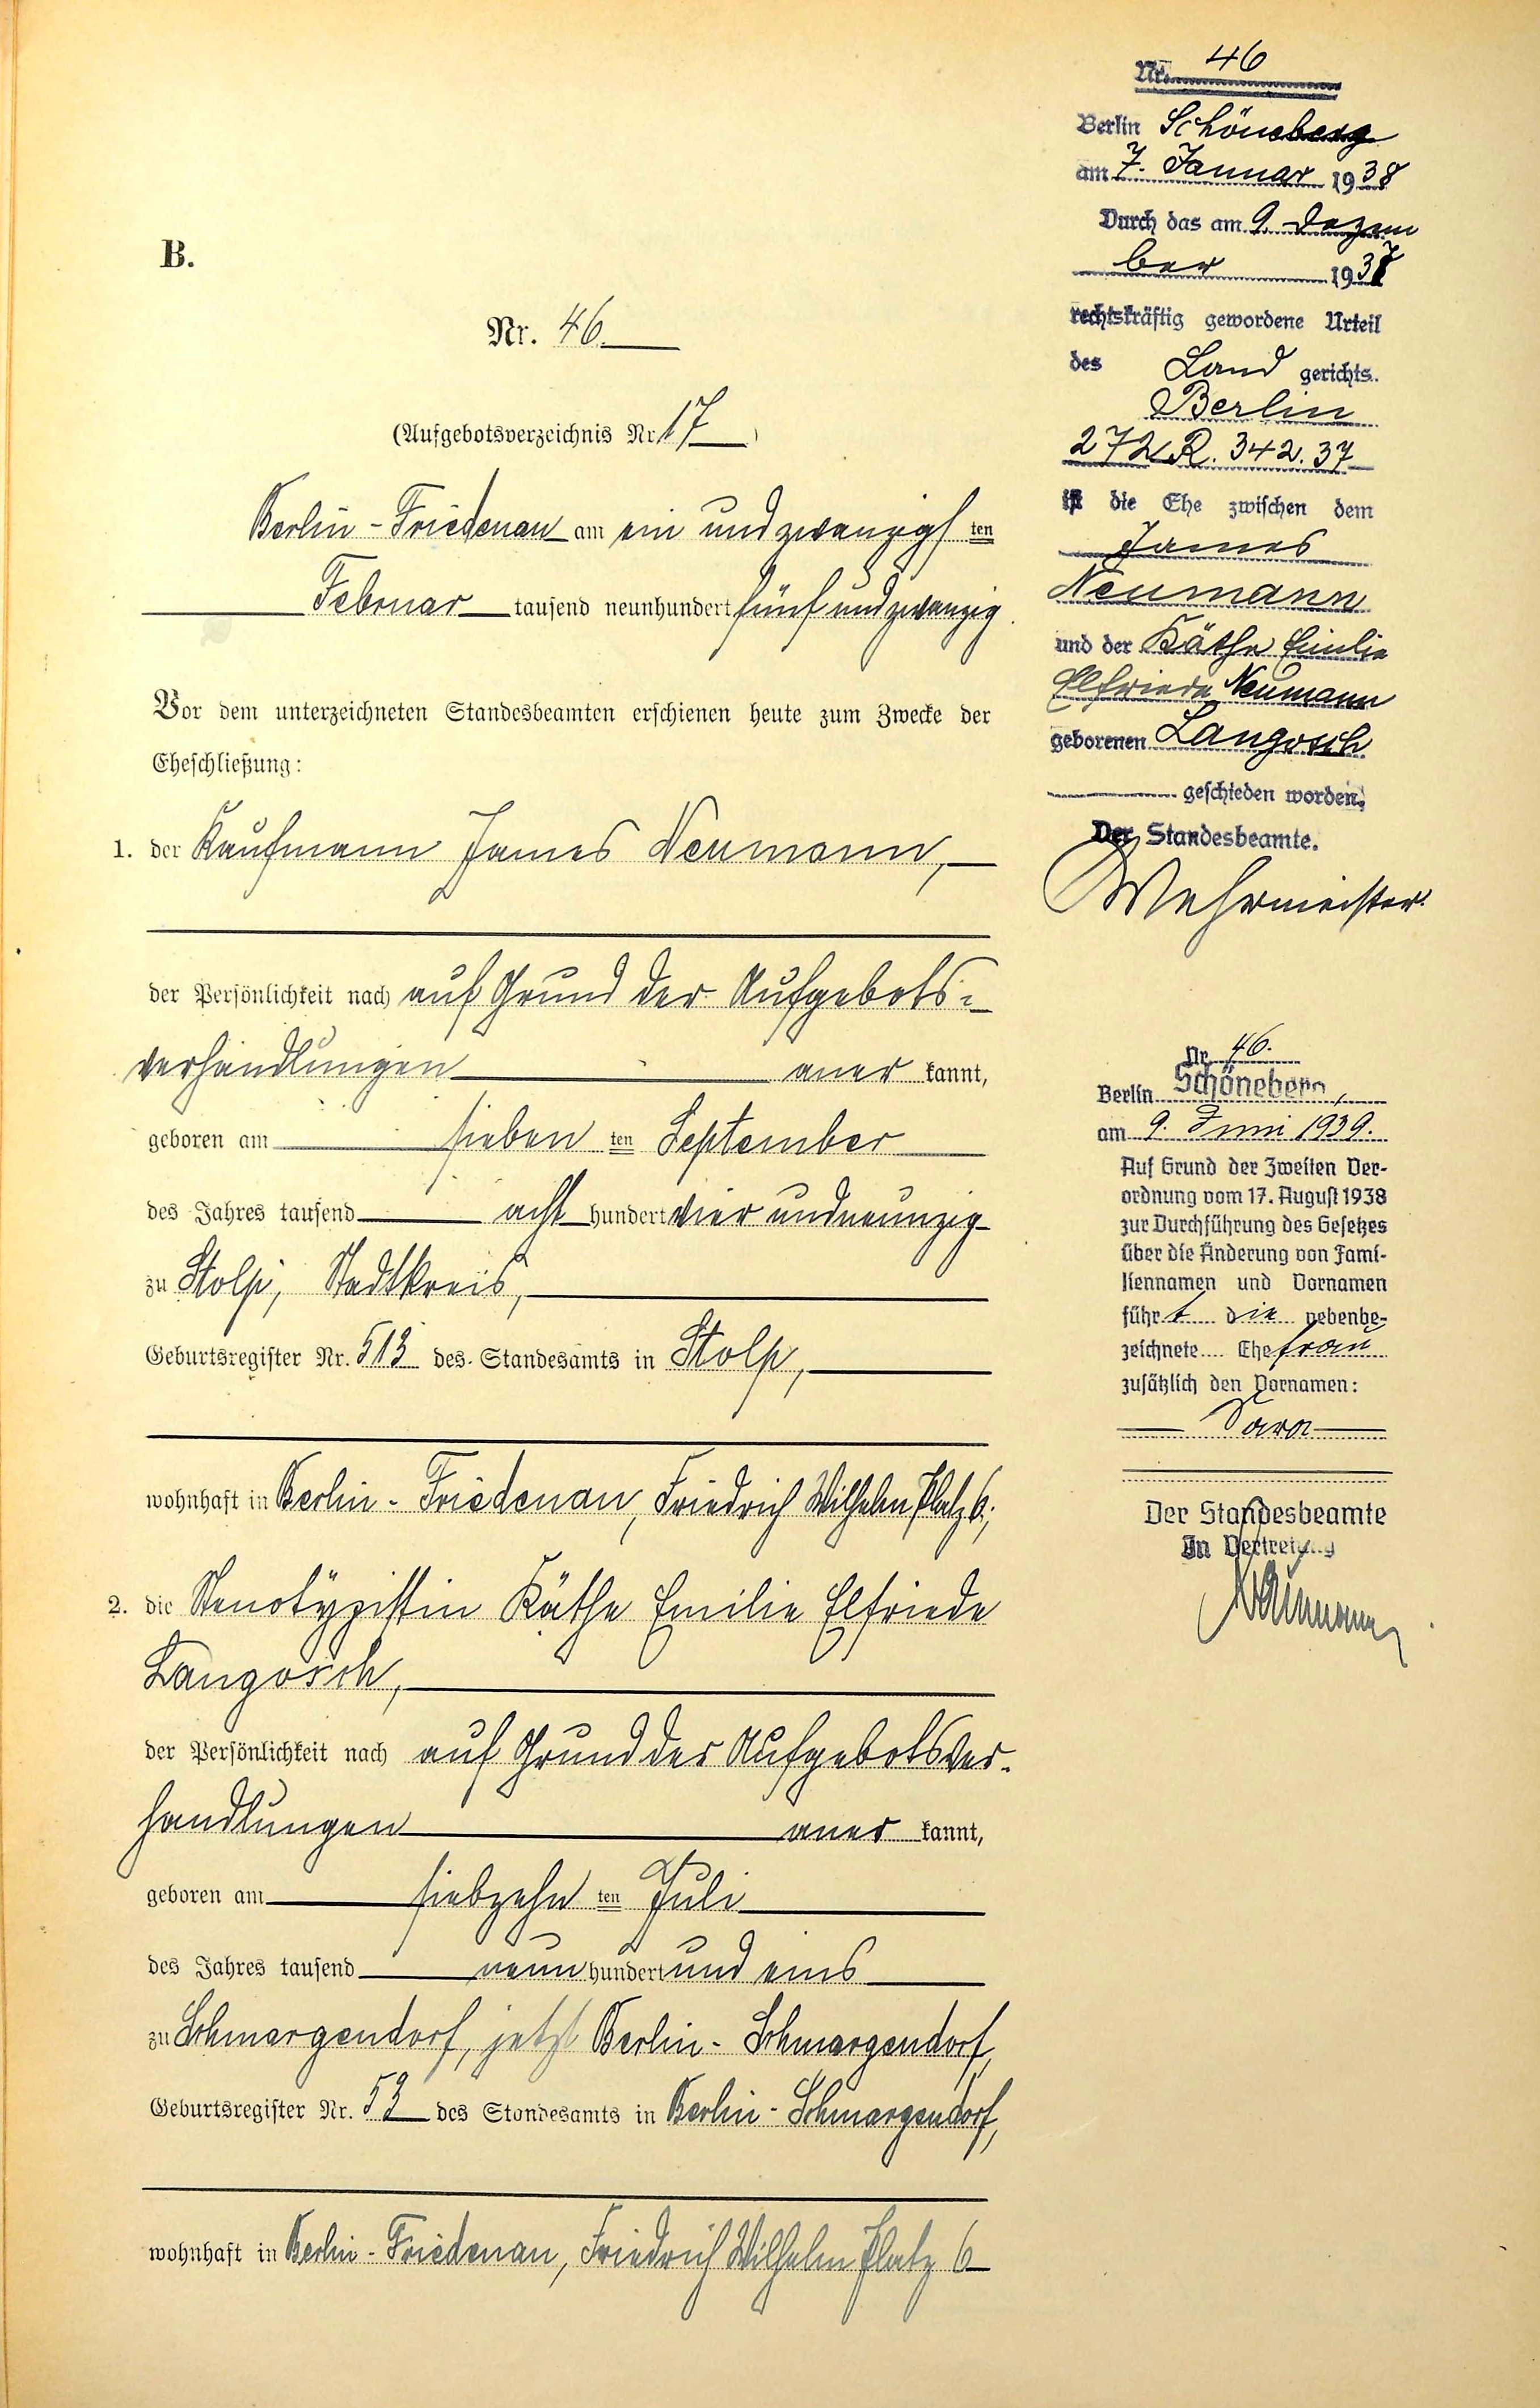 B.
Nr. 46.
(Aufgebotsverzeichnis Nr. 17)
Berlin-Friedenau am ein und zwanzigsten
Februar tausend neunhundert fünf und zwanzig.
Vor dem unterzeichneten Standesbeamten erschienen heute zum Zwecke der
Eheschließung:
1. der Kaufmann James Neumann,
der Persönlichkeit nach auf Grund der Aufgebots-
verhandlungen aner kannt,
geboren am sieben ten September
des Jahres tausend acht hundert vier undneunzig
zu Stolp, Stadtkreis,
Geburtsregister Nr. 513 des Standesamts in Stolp,
wohnhaft in Berlin-Friedenau, Friedrich Wilhelm Platz 6;
2. die Stenotypistin Käthe Emilie Elfriede
Langosch,
der Persönlichkeit nach auf Grund der Aufgebotsver-
handlungen aner kannt,
geboren am siebzehn ten Juli
des Jahres tausend neun hundert und eins
zu Schmargendorf, jetzt Berlin-Schmargendorf,
Geburtsregister Nr. 53 des Standesamts in Berlin-Schmargendorf,
wohnhaft in Berlin-Friedenau, Friedrich Wilhelm Platz 6
Nr. 46
Berlin Schöneberg
am 7. Januar 1938
Durch das am 9. Dezem
ber 1937
rechtskräftig gewordene Urteil
des Land gerichts.
Berlin
272 R. 342. 37
ist die Ehe zwischen dem
James
Neumann
und der Käthe Emilie
Elfriede Neumann
geborenen Langosch
geschieden worden.
Der Standesbeamte.
Wehrmeister.
Nr. 46.
Berlin Schöneberg,
am 9. Juni 1939.
Auf Grund der Zweiten Ver-
ordnung vom 17. August 1938
zur Durchführung des Gesetzes
über die Änderung von Fami-
liennamen und Vornamen
führt die nebenbe-
zeichnete Ehefrau
zusätzlich den Vornamen:
Sara
Der Standesbeamte
In Vertretung